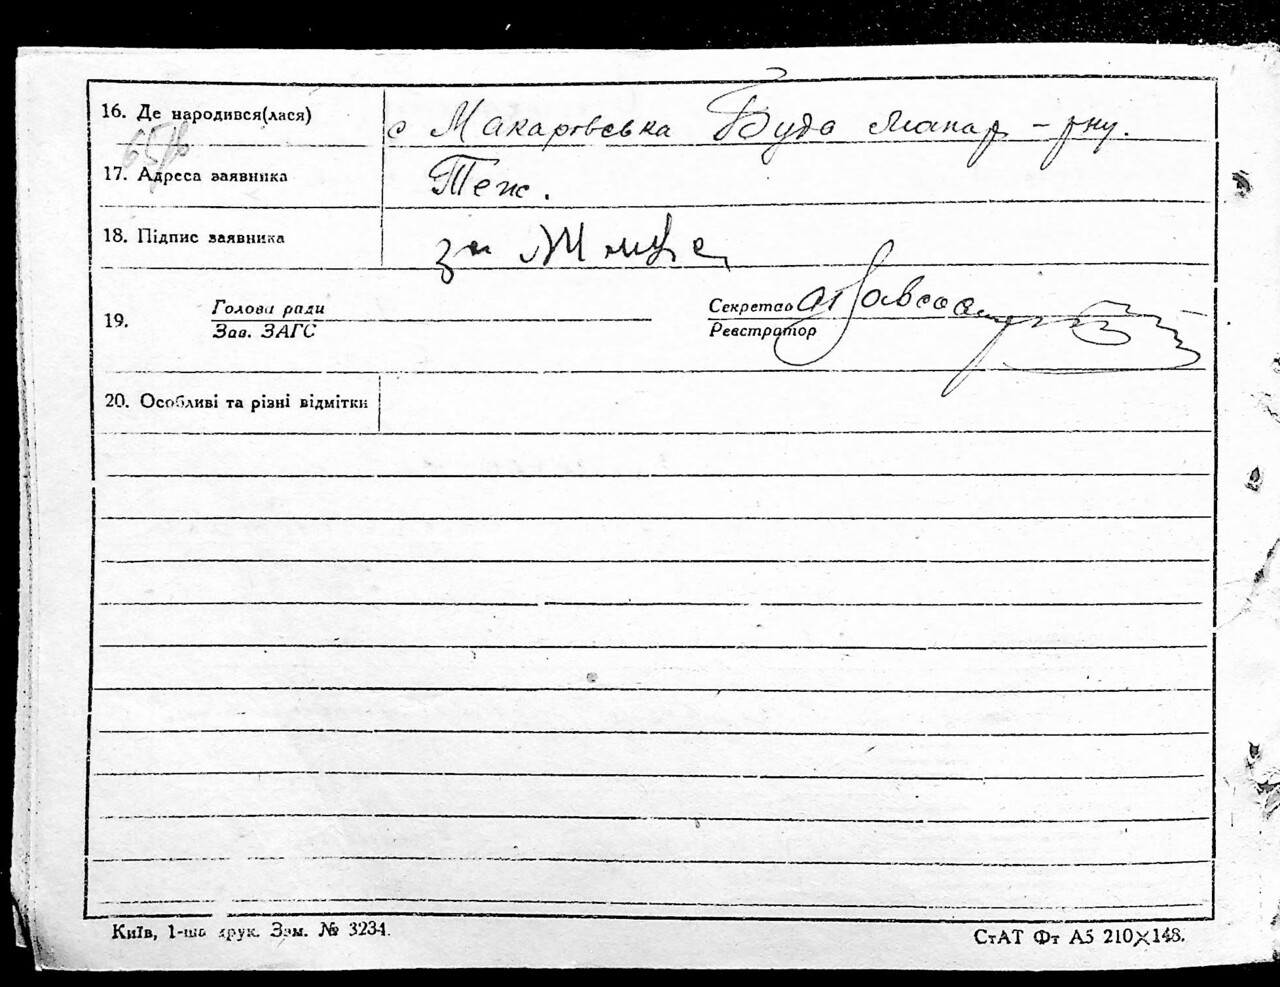 16. Де народився(лася) с Макаровська Буда Макар-рну.
65
17. Адреса заявника Теж.
18. Підпис заявника за
19. Голова ради Секретар
Зав. ЗАГС Реєстратор
20. Особливі та різні відмітки
Київ, 1-ша друк. Зам. № 3234.
СтАТ Фт А5 210×148.